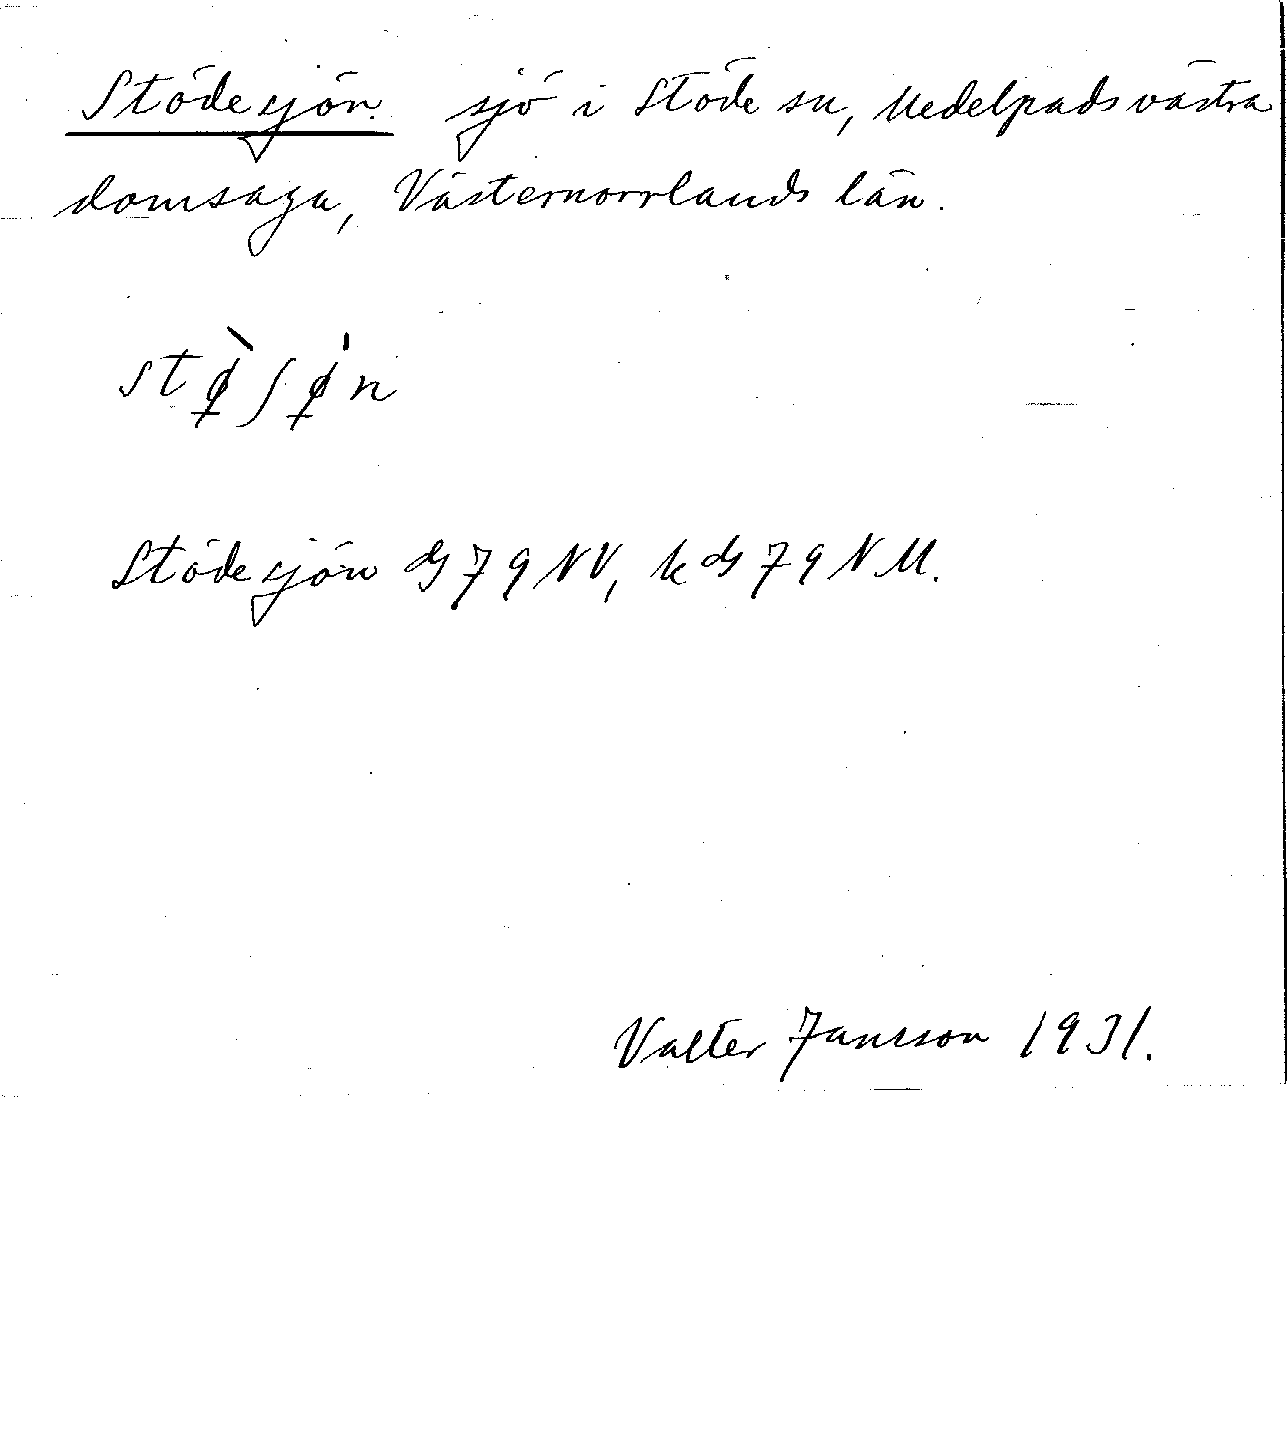 Stödesjön. sjö i Stöde sn, Medelpads västra
domsaga, Västernorrlands län.
stø̀ʃø̍n
Stödesjön gs 79 NV, k ds 79 NM.
Valter Jansson 1931.